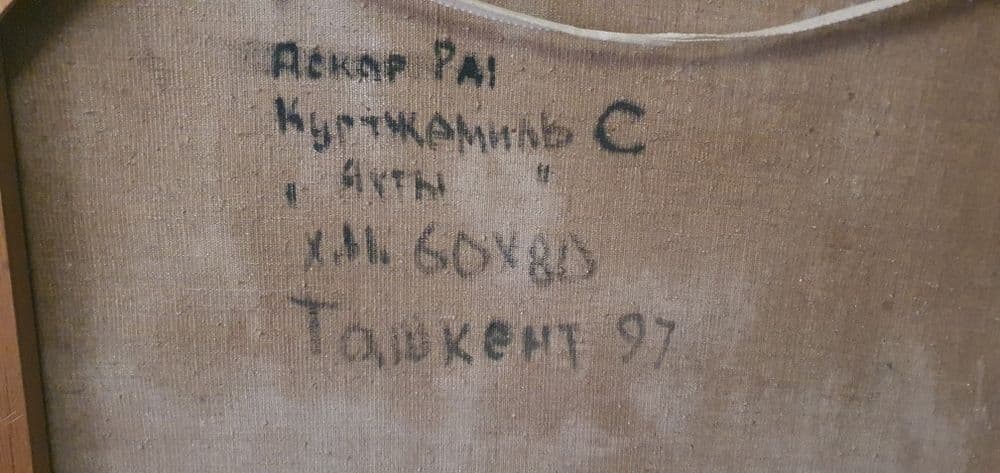 Аскар РА!
Куртжамиль С
„ Яхты "
х.м. 60х80
Ташкент 97